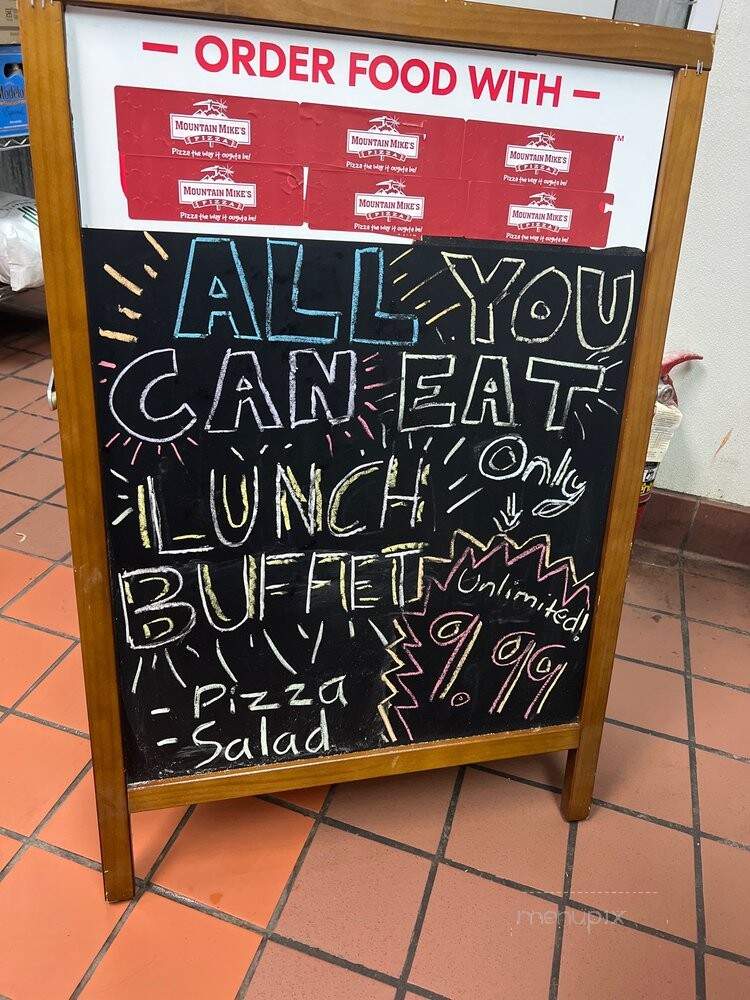 — ORDER FOOD WITH —
MOUNTAIN MIKE'S MOUNTAIN MIKE'S MOUNTAIN MIKE'S
PIZZA PIZZA PIZZA
Pizza the way it oughta be! Pizza the way it oughta be! Pizza the way it oughta be!
TM
MOUNTAIN MIKE'S MOUNTAIN MIKE'S MOUNTAIN MIKE'S
PIZZA PIZZA PIZZA
Pizza the way it oughta be! Pizza the way it oughta be! Pizza the way it oughta be!
ALL YOU
CAN EAT
LUNCH Only
BUFFET Unlimited!
9.99
- Pizza
- Salad
menupix